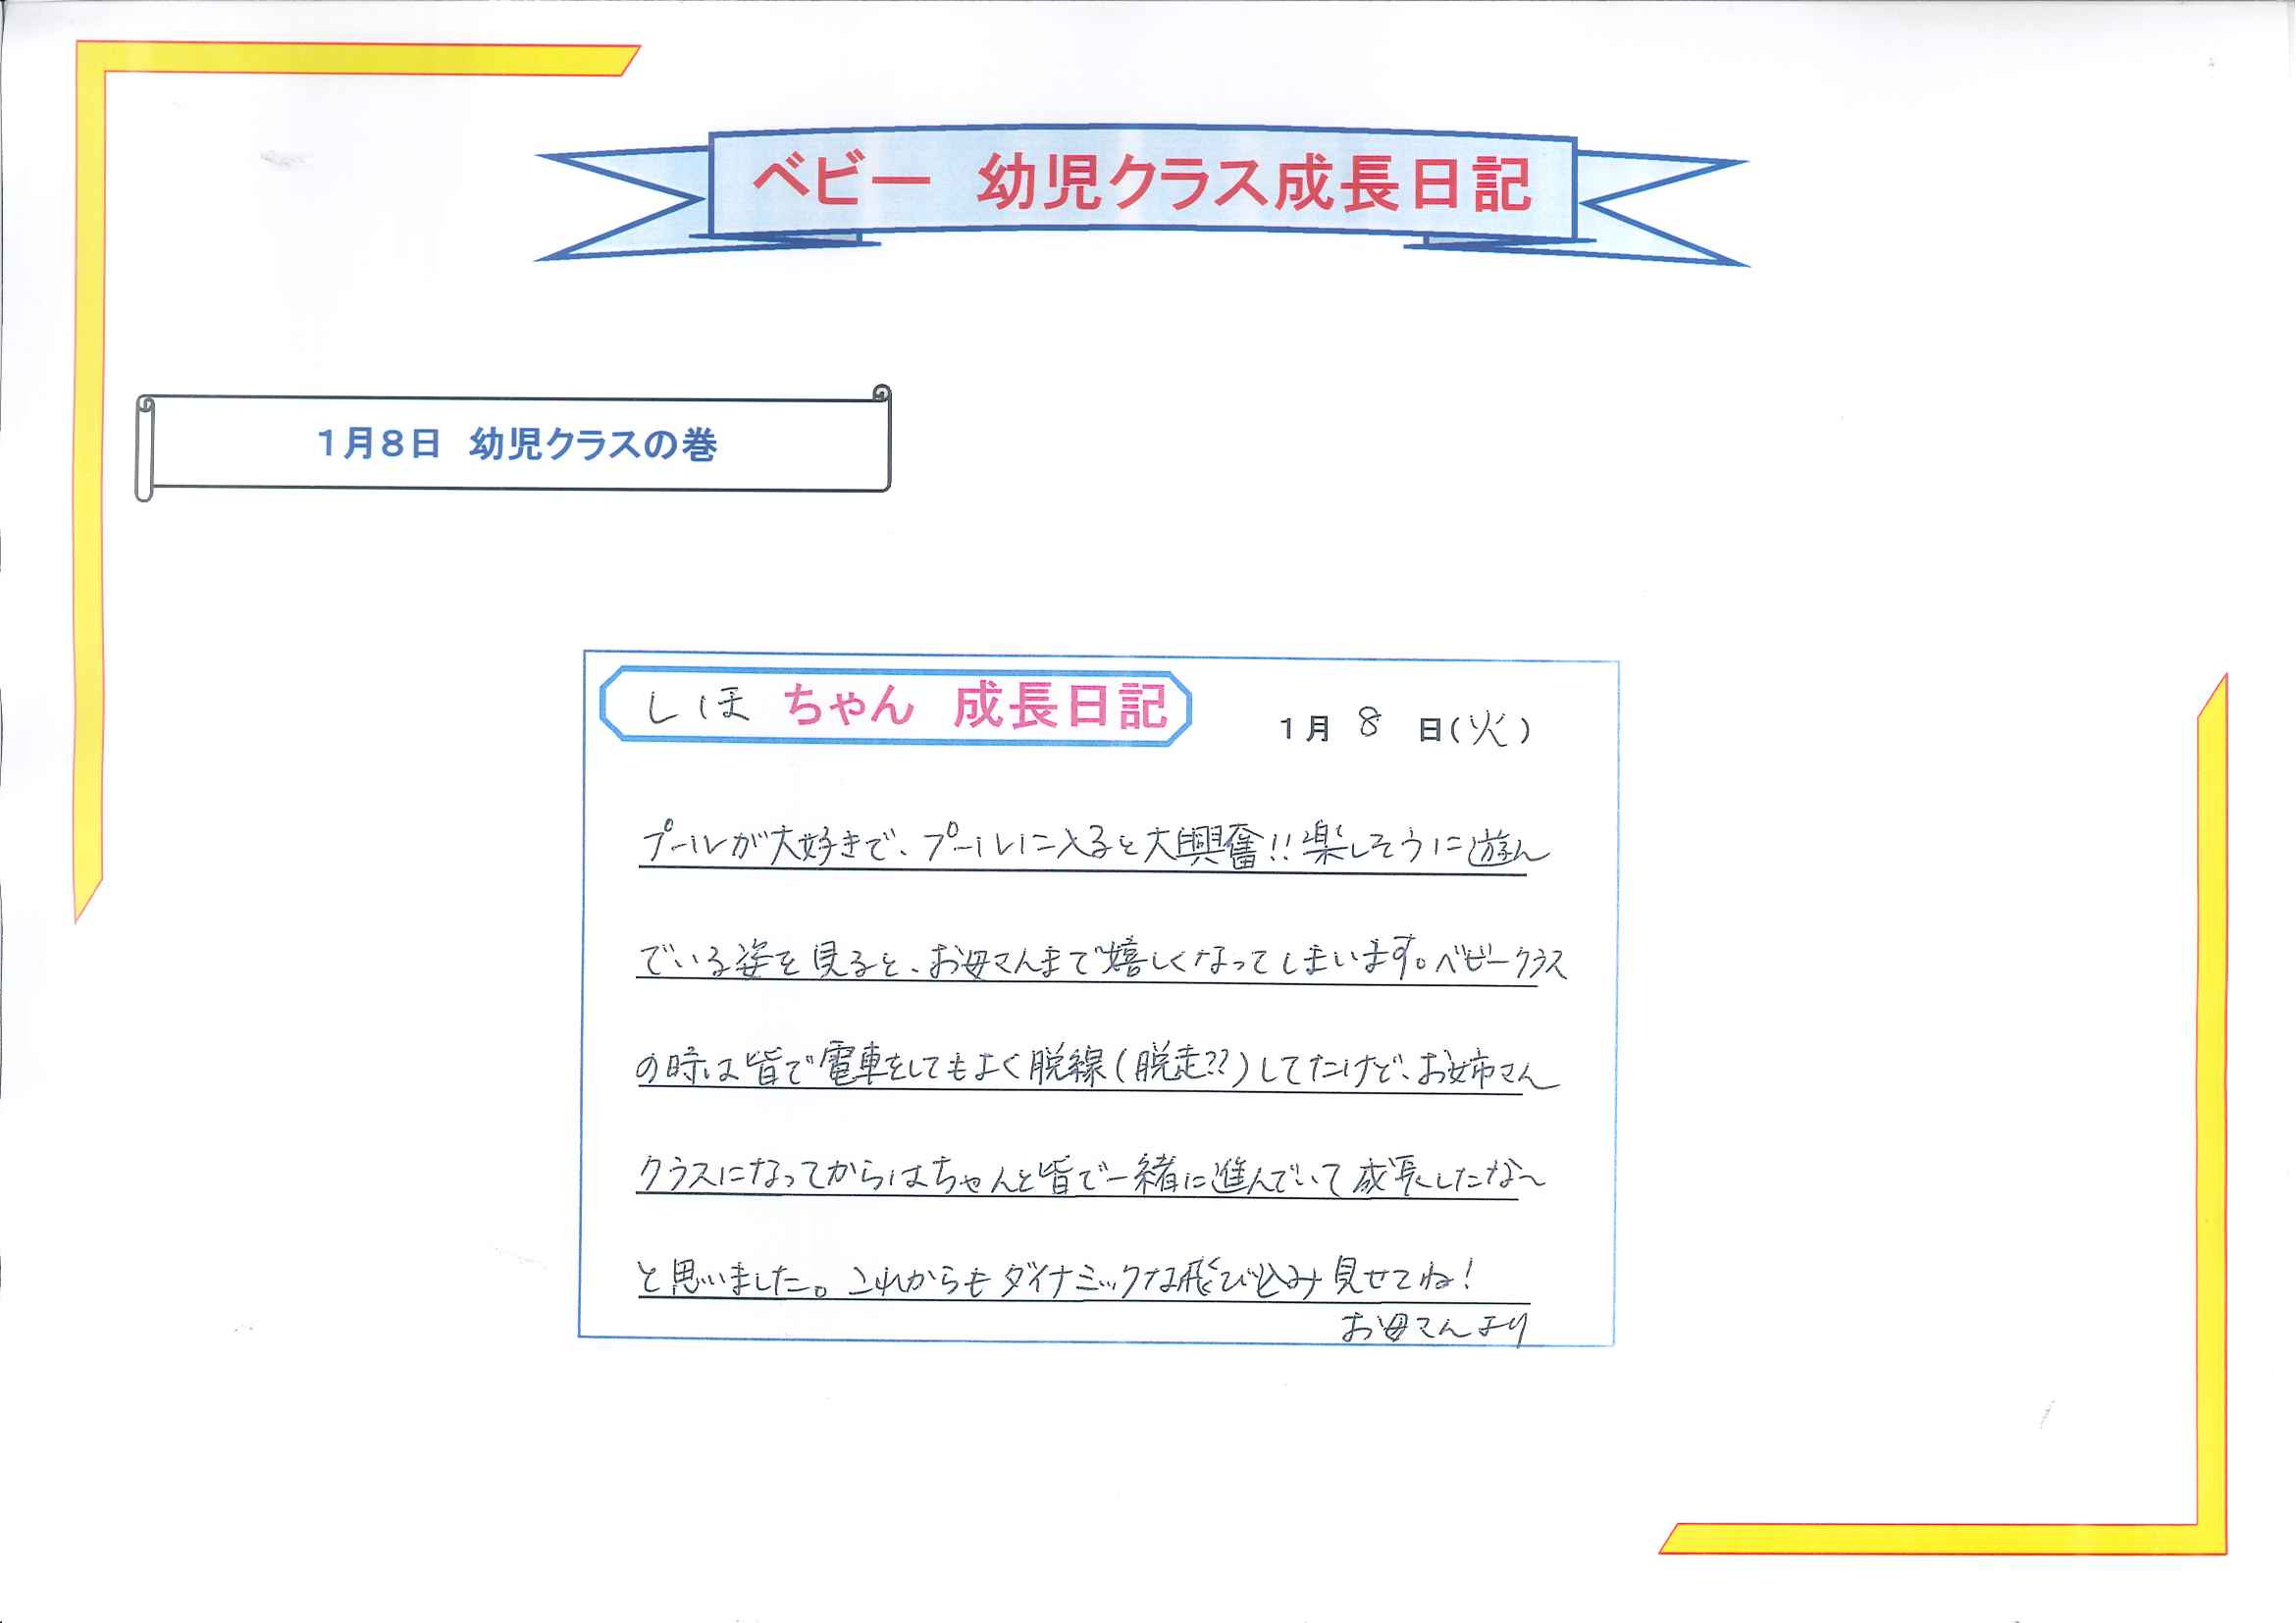 ベビー　幼児クラス成長日記
1月8日　幼児クラスの巻
しほ ちゃん　成長日記
1月 8 日(火)
プールが大好きで、プールに入ると大興奮!!楽しそうに遊ん
でいる姿を見ると、お母さんまで嬉しくなってしまいます。ベビークラス
の時は皆で電車をしてもよく脱線(脱走??)してたけど、お姉さん
クラスになってからはちゃんと皆で一緒に進んでいて成長したな〜
と思いました。これからもダイナミックな飛び込み見せてね!
お母さんより